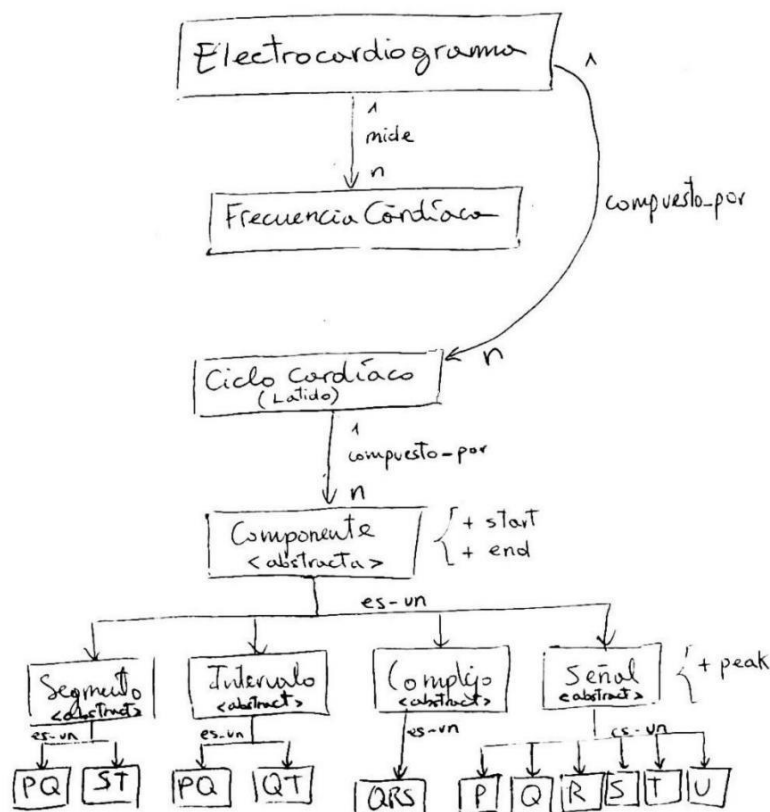 Electrocardiograma
1
1
mide
n
Frecuencia Cardíaca
compuesto_por
n
Ciclo Cardíaco
(Latido)
1
compuesto-por
n
Componente
<abstracta>
+ start
+ end
es-un
Segmento
<abstract>
Intervalo
<abstract>
Complejo
<abstract>
Señal
<abstract>
+ peak
es-un
es-un
es-un
es-un
PQ
ST
PQ
QT
QRS
P
Q
R
S
T
U